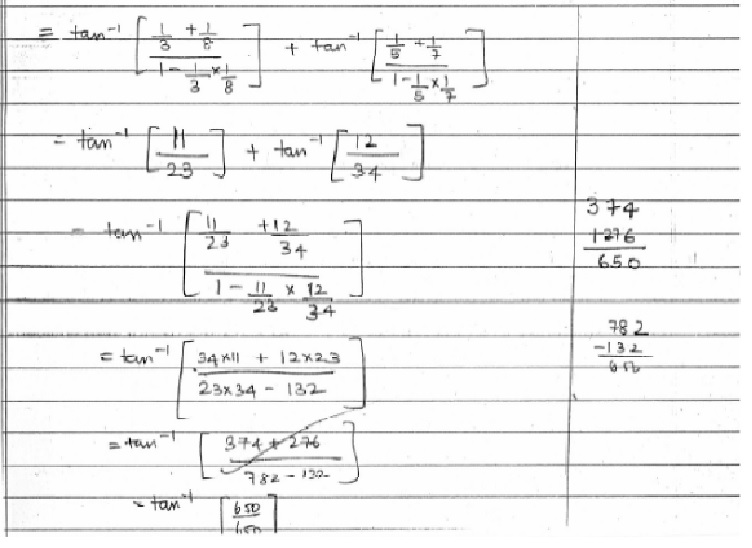 = tan⁻¹ [ (1/3 + 1/8) / (1 - 1/3 × 1/8) ] + tan⁻¹ [ (1/5 + 1/7) / (1 - 1/5 × 1/7) ]
= tan⁻¹ [ 11/23 ] + tan⁻¹ [ 12/34 ]
= tan⁻¹ [ (11/23 + 12/34) / (1 - 11/23 × 12/34) ]
= tan⁻¹ [ (34×11 + 12×23) / (23×34 - 132) ]
= tan⁻¹ [ (374 + 276) / (782 - 132) ]
= tan⁻¹ [ 650/650 ]
374
+276
650
782
-132
650